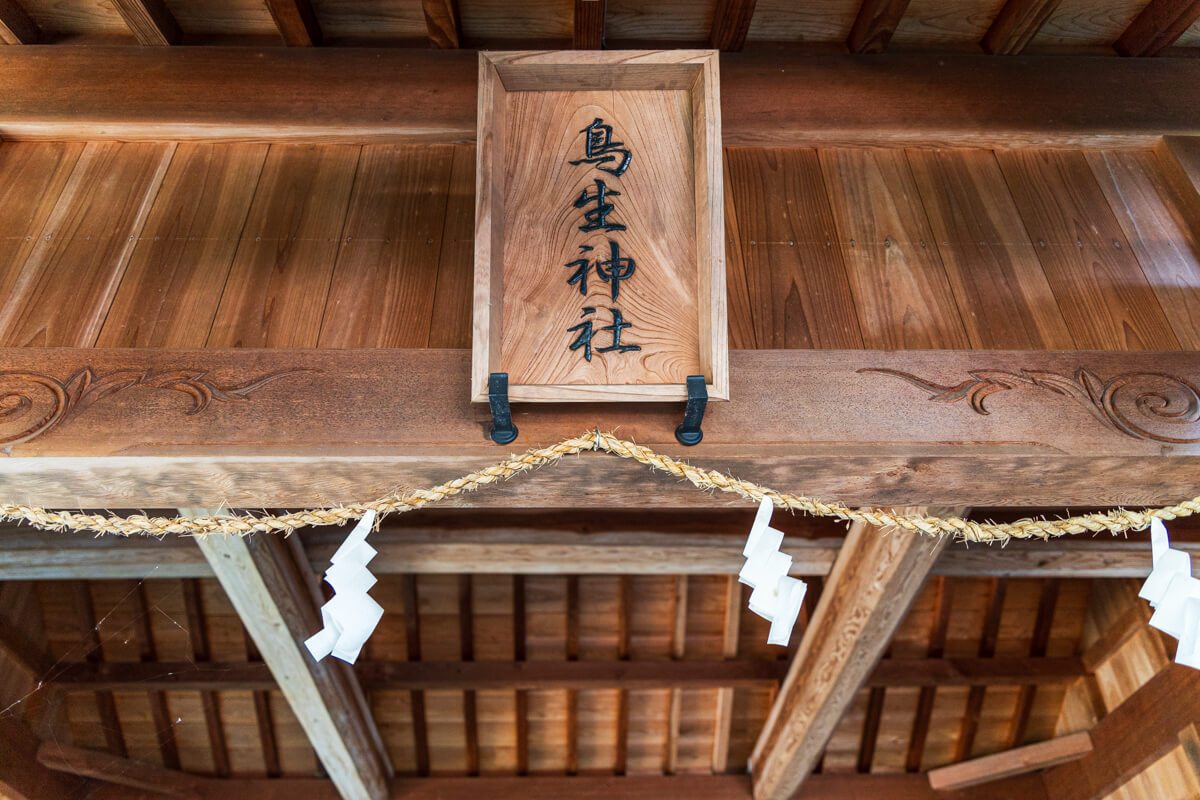 鳥生神社